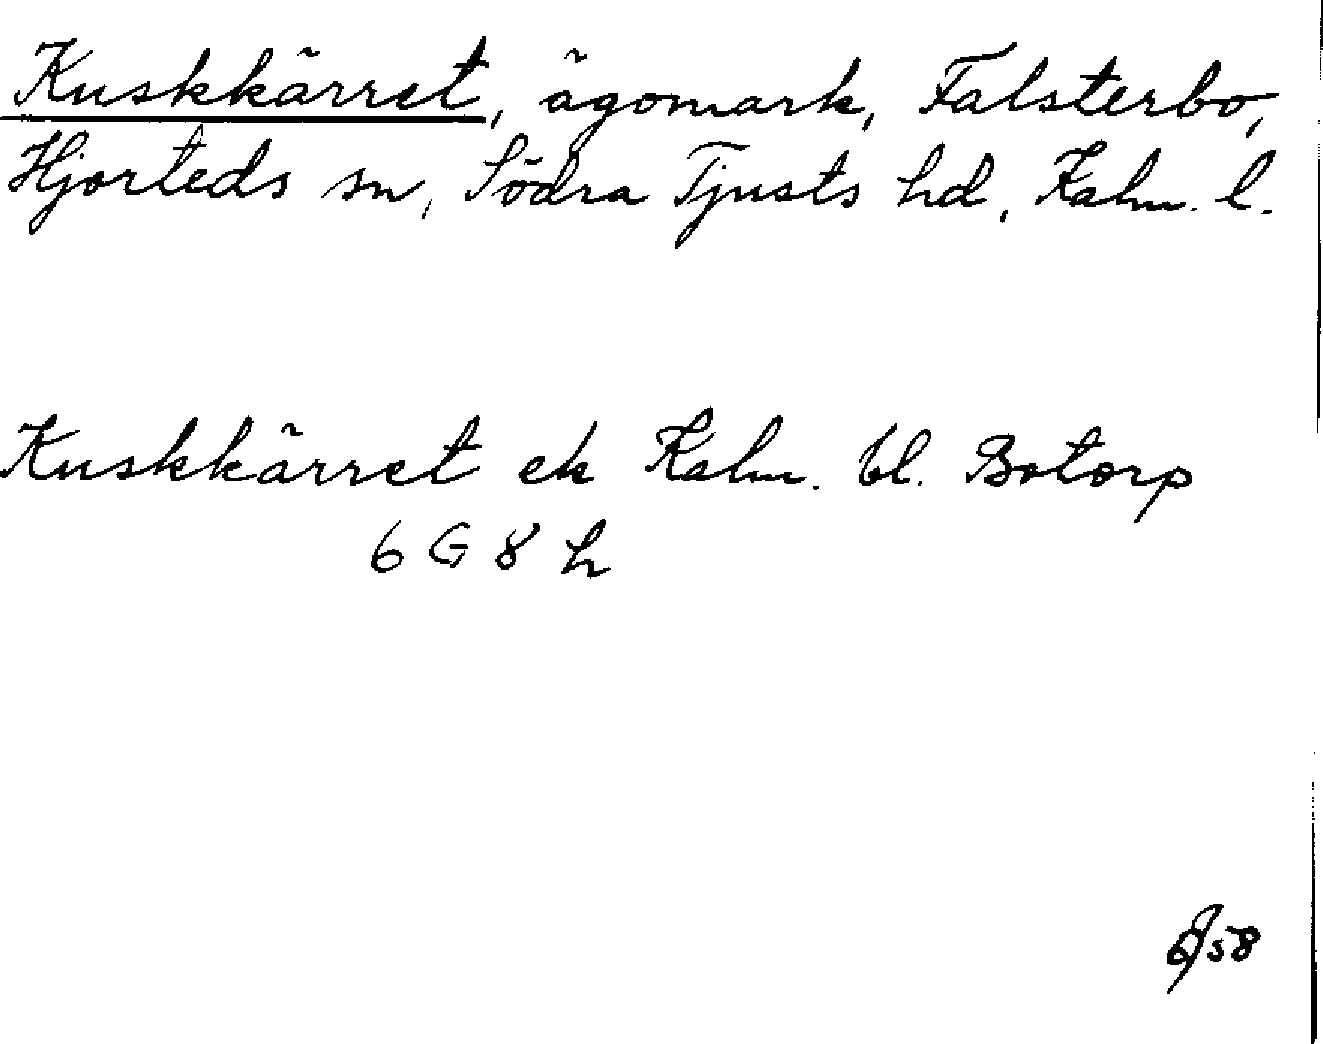 Kuskkärret, ägomark, Falsterbo,
Hjorteds sn, Södra Tjusts hd, Kalm. l.
Kuskkärret ek Kalm. bl. Botorp
6 G 8 h